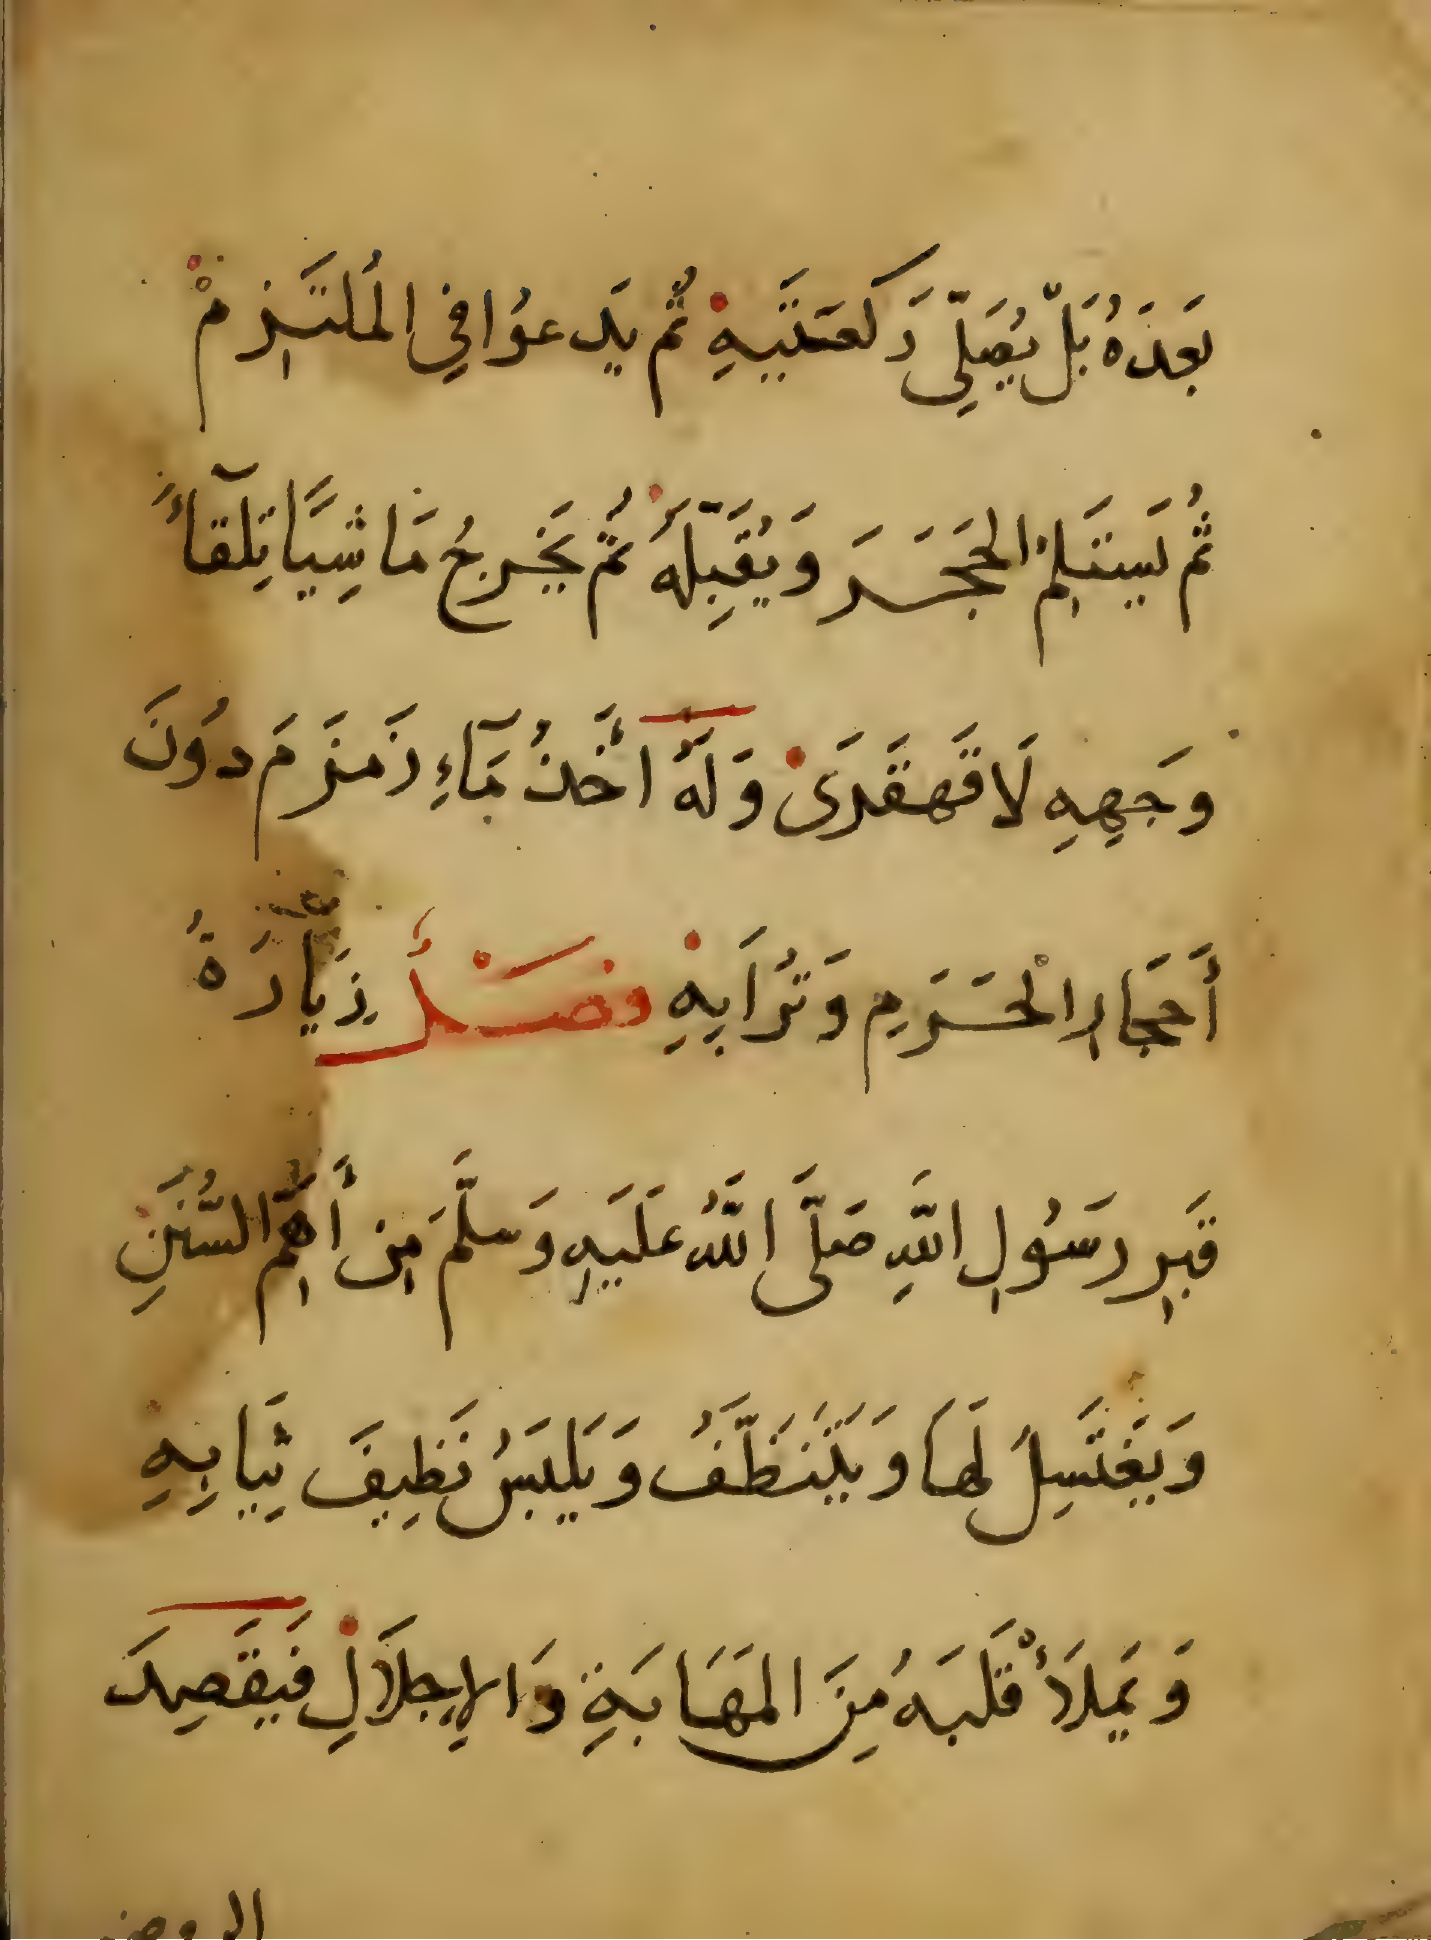 بَعدَهُ بَلْ يُصَلِّي رَكعَتَيهِ ثُم يَدعُوا فِي المُلتَزِمْ
ثُم يَستَلِمُ الحَجَرَ وَيُقَبِّلَهُ ثُمّ يَخرِجُ مَاشِيًا تِلقَآءَ
وَجهِهِ لَا قَهقَرَى وَلَهُ أَخذُ مَآءِ زَمزَمَ دُونَ
أَحجَارِ الْحَرَمِ وَتُرَابِهِ فَصْلٌ زِيَارَةُ
قَبرِ رَسُولِ اللَّهِ صَلَّى اللَّهُ عَلَيهِ وَسَلَّمَ مِن أَهَمِّ السُّنَنِ
وَيَغتَسِلُ لَهَا وَيَتَنَظَّفُ وَيَلبَسُ نَظِيفَ ثِيَابِهِ
وَيَملَأُ قَلبَهُ مِنَ المَهَابَةِ وَالإِجلَالِ فَيَقصِدَ
الروضه